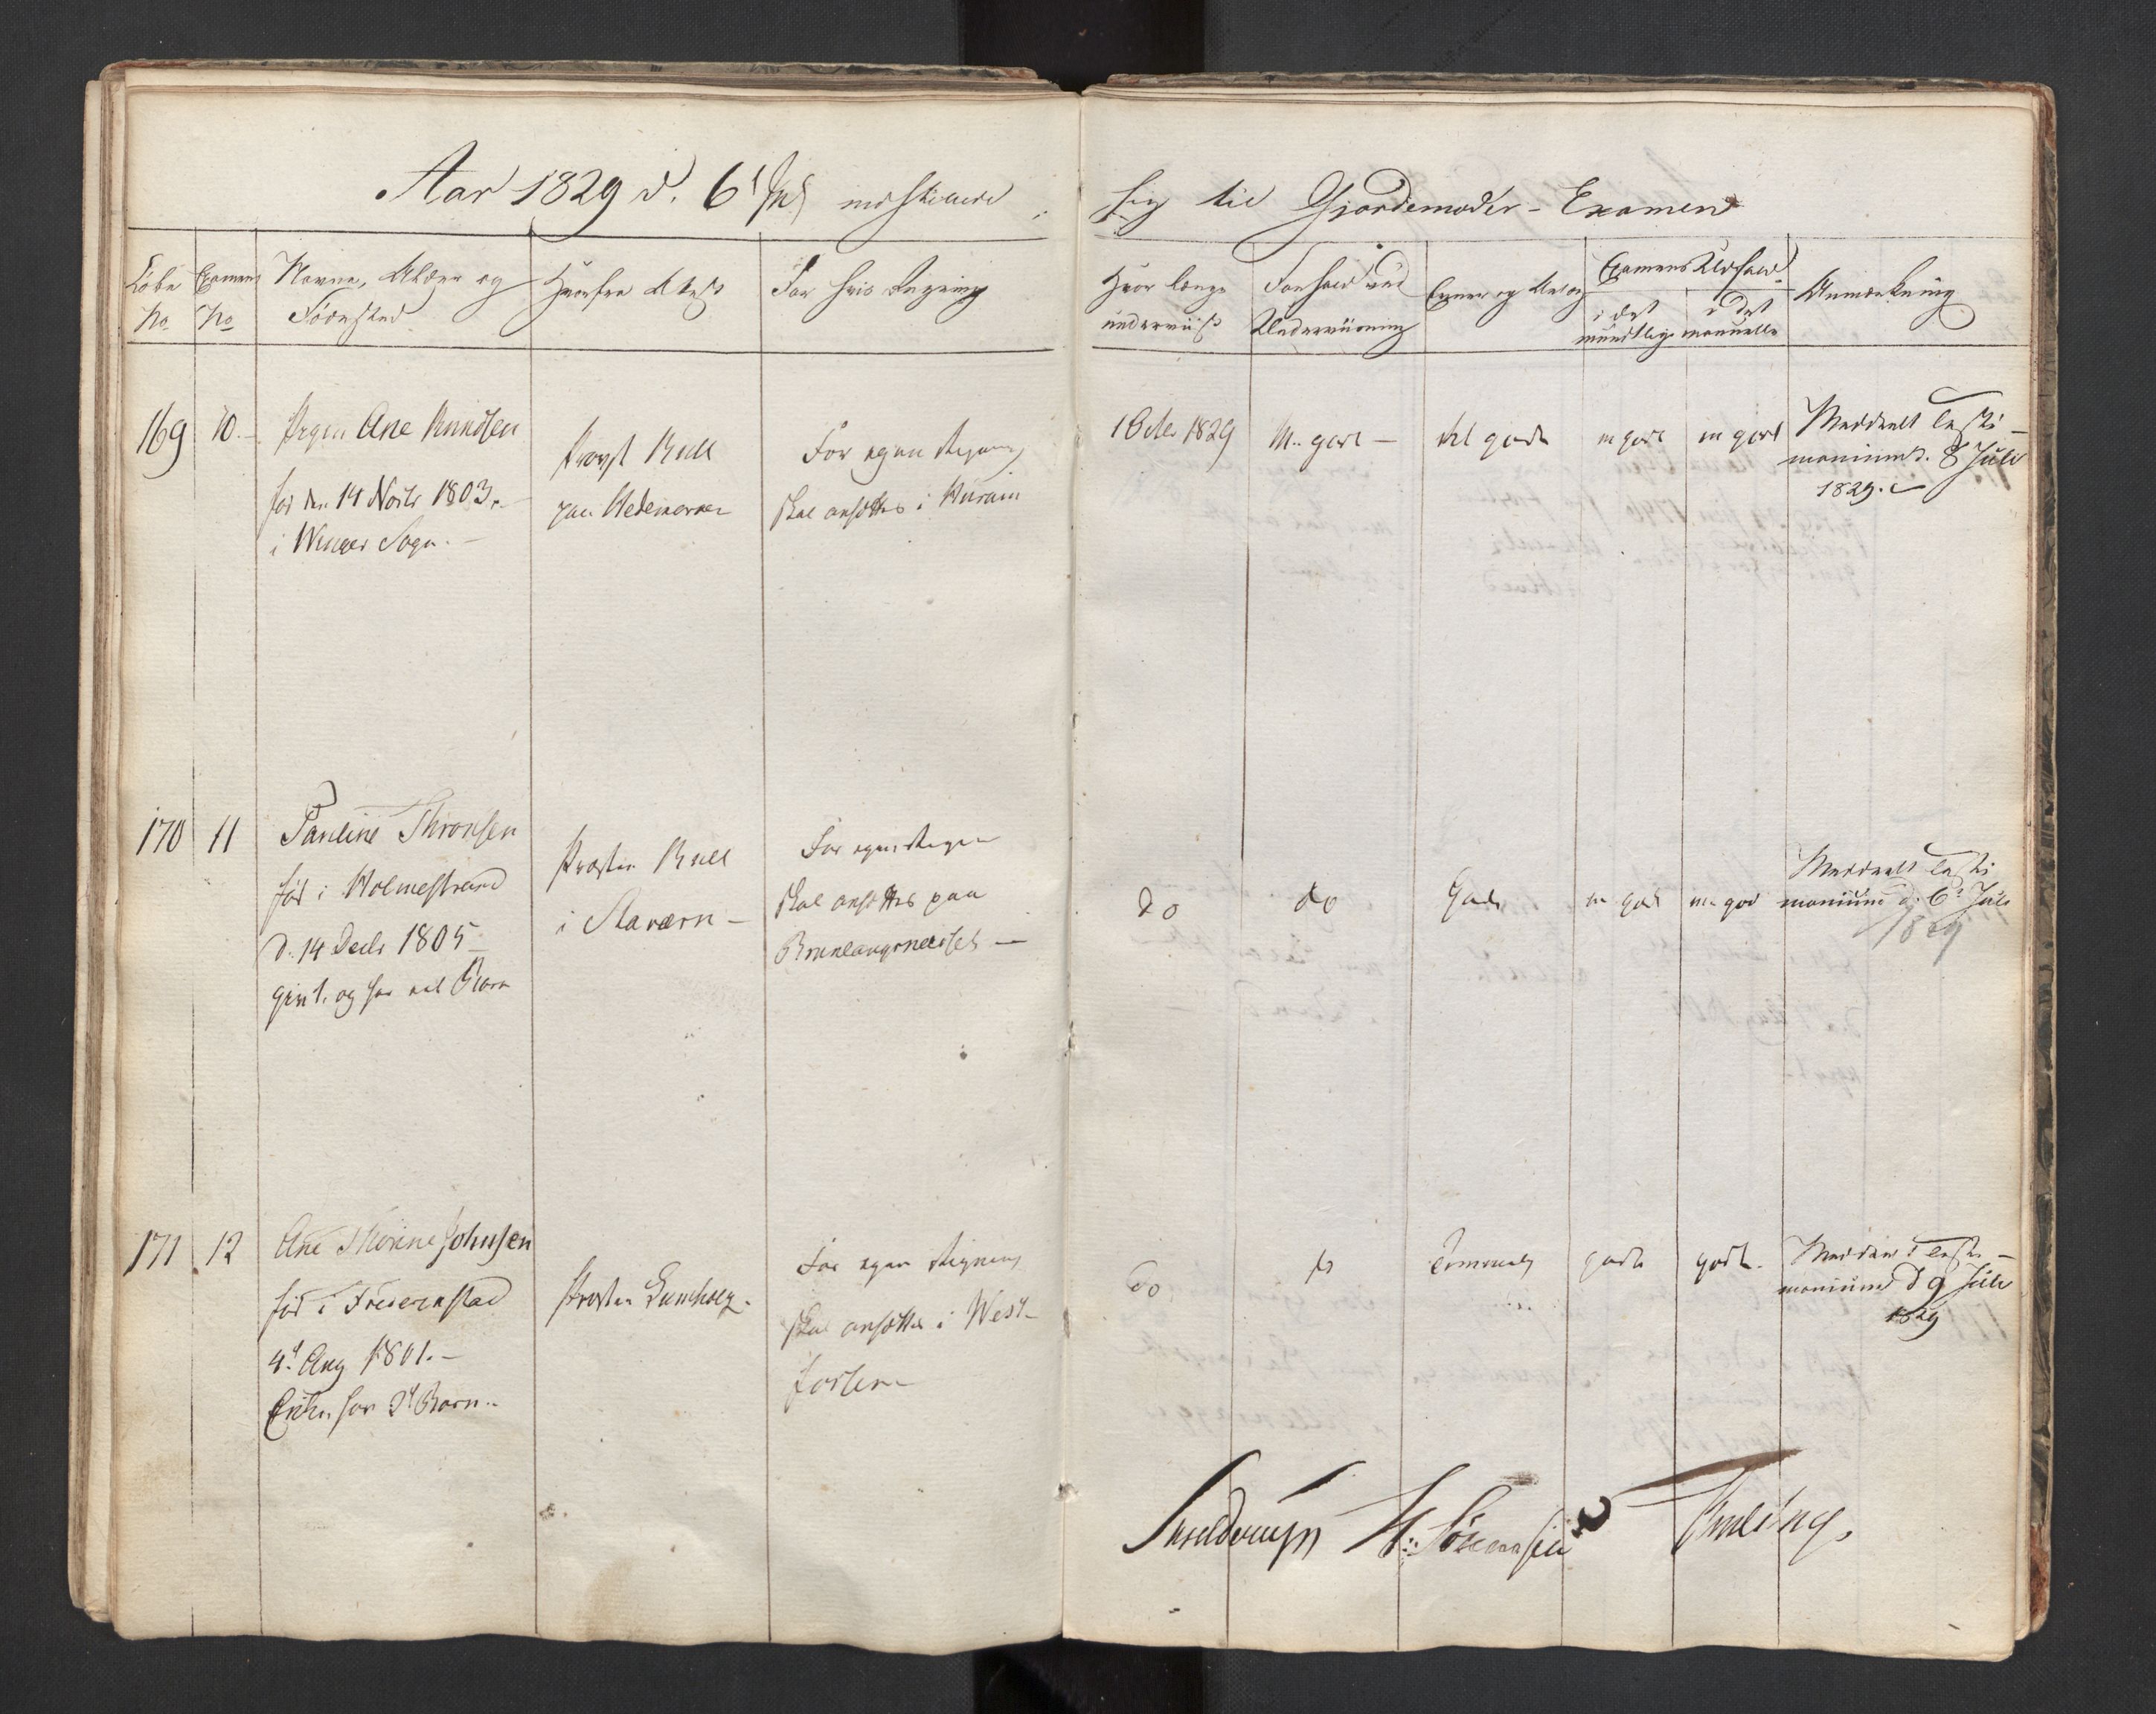 Aar 1829 d. 6t Juli indstillede
sig til Gjordemoder-Examen
Løbe No
Examens No
Navne, Alder og Fødested
Hvorfra Attest
For hvis Regning
Hvor længe underviist
Forhold ved Underviisning
Evner og Anlæg
Examens Udfald
i det mundtlige
i det manuelle
Anmærkning
169
10.
Pigen Ane Knudsen
fød den 14 Novbr 1803.
i Winger Sogn.
Provst Bull
paa Hedemarken
For egen Regning
skal ansættes i
1 Octbr 1829
M. godt
vel gode
m godt
m godt
Meddeelt Testi-
monium d. 8 Juli
1829.
170
11
Pauline Thronsen
fød i Holmestrand
d. 14 Decbr 1805
givt. og har eet Barn
Præsten Bull
i Staværn
For egen Regn
skal ansættes paa
do
do
Gode
m godt
m god
Meddeelt Testi
monium d. 6t Juli
1829
171
12
Ane Thorine Johnsen
fød i Fredrikstad
4d Aug 1801.
Enke har 2d Børn.
Præsten
For egen Regning
skal ansættes i West-
fossen
do
do
Temmelig
godt
godt.
Meddeelt Testi-
monium d 9 Juli
1829
H: Sørenssen
Thulstrup